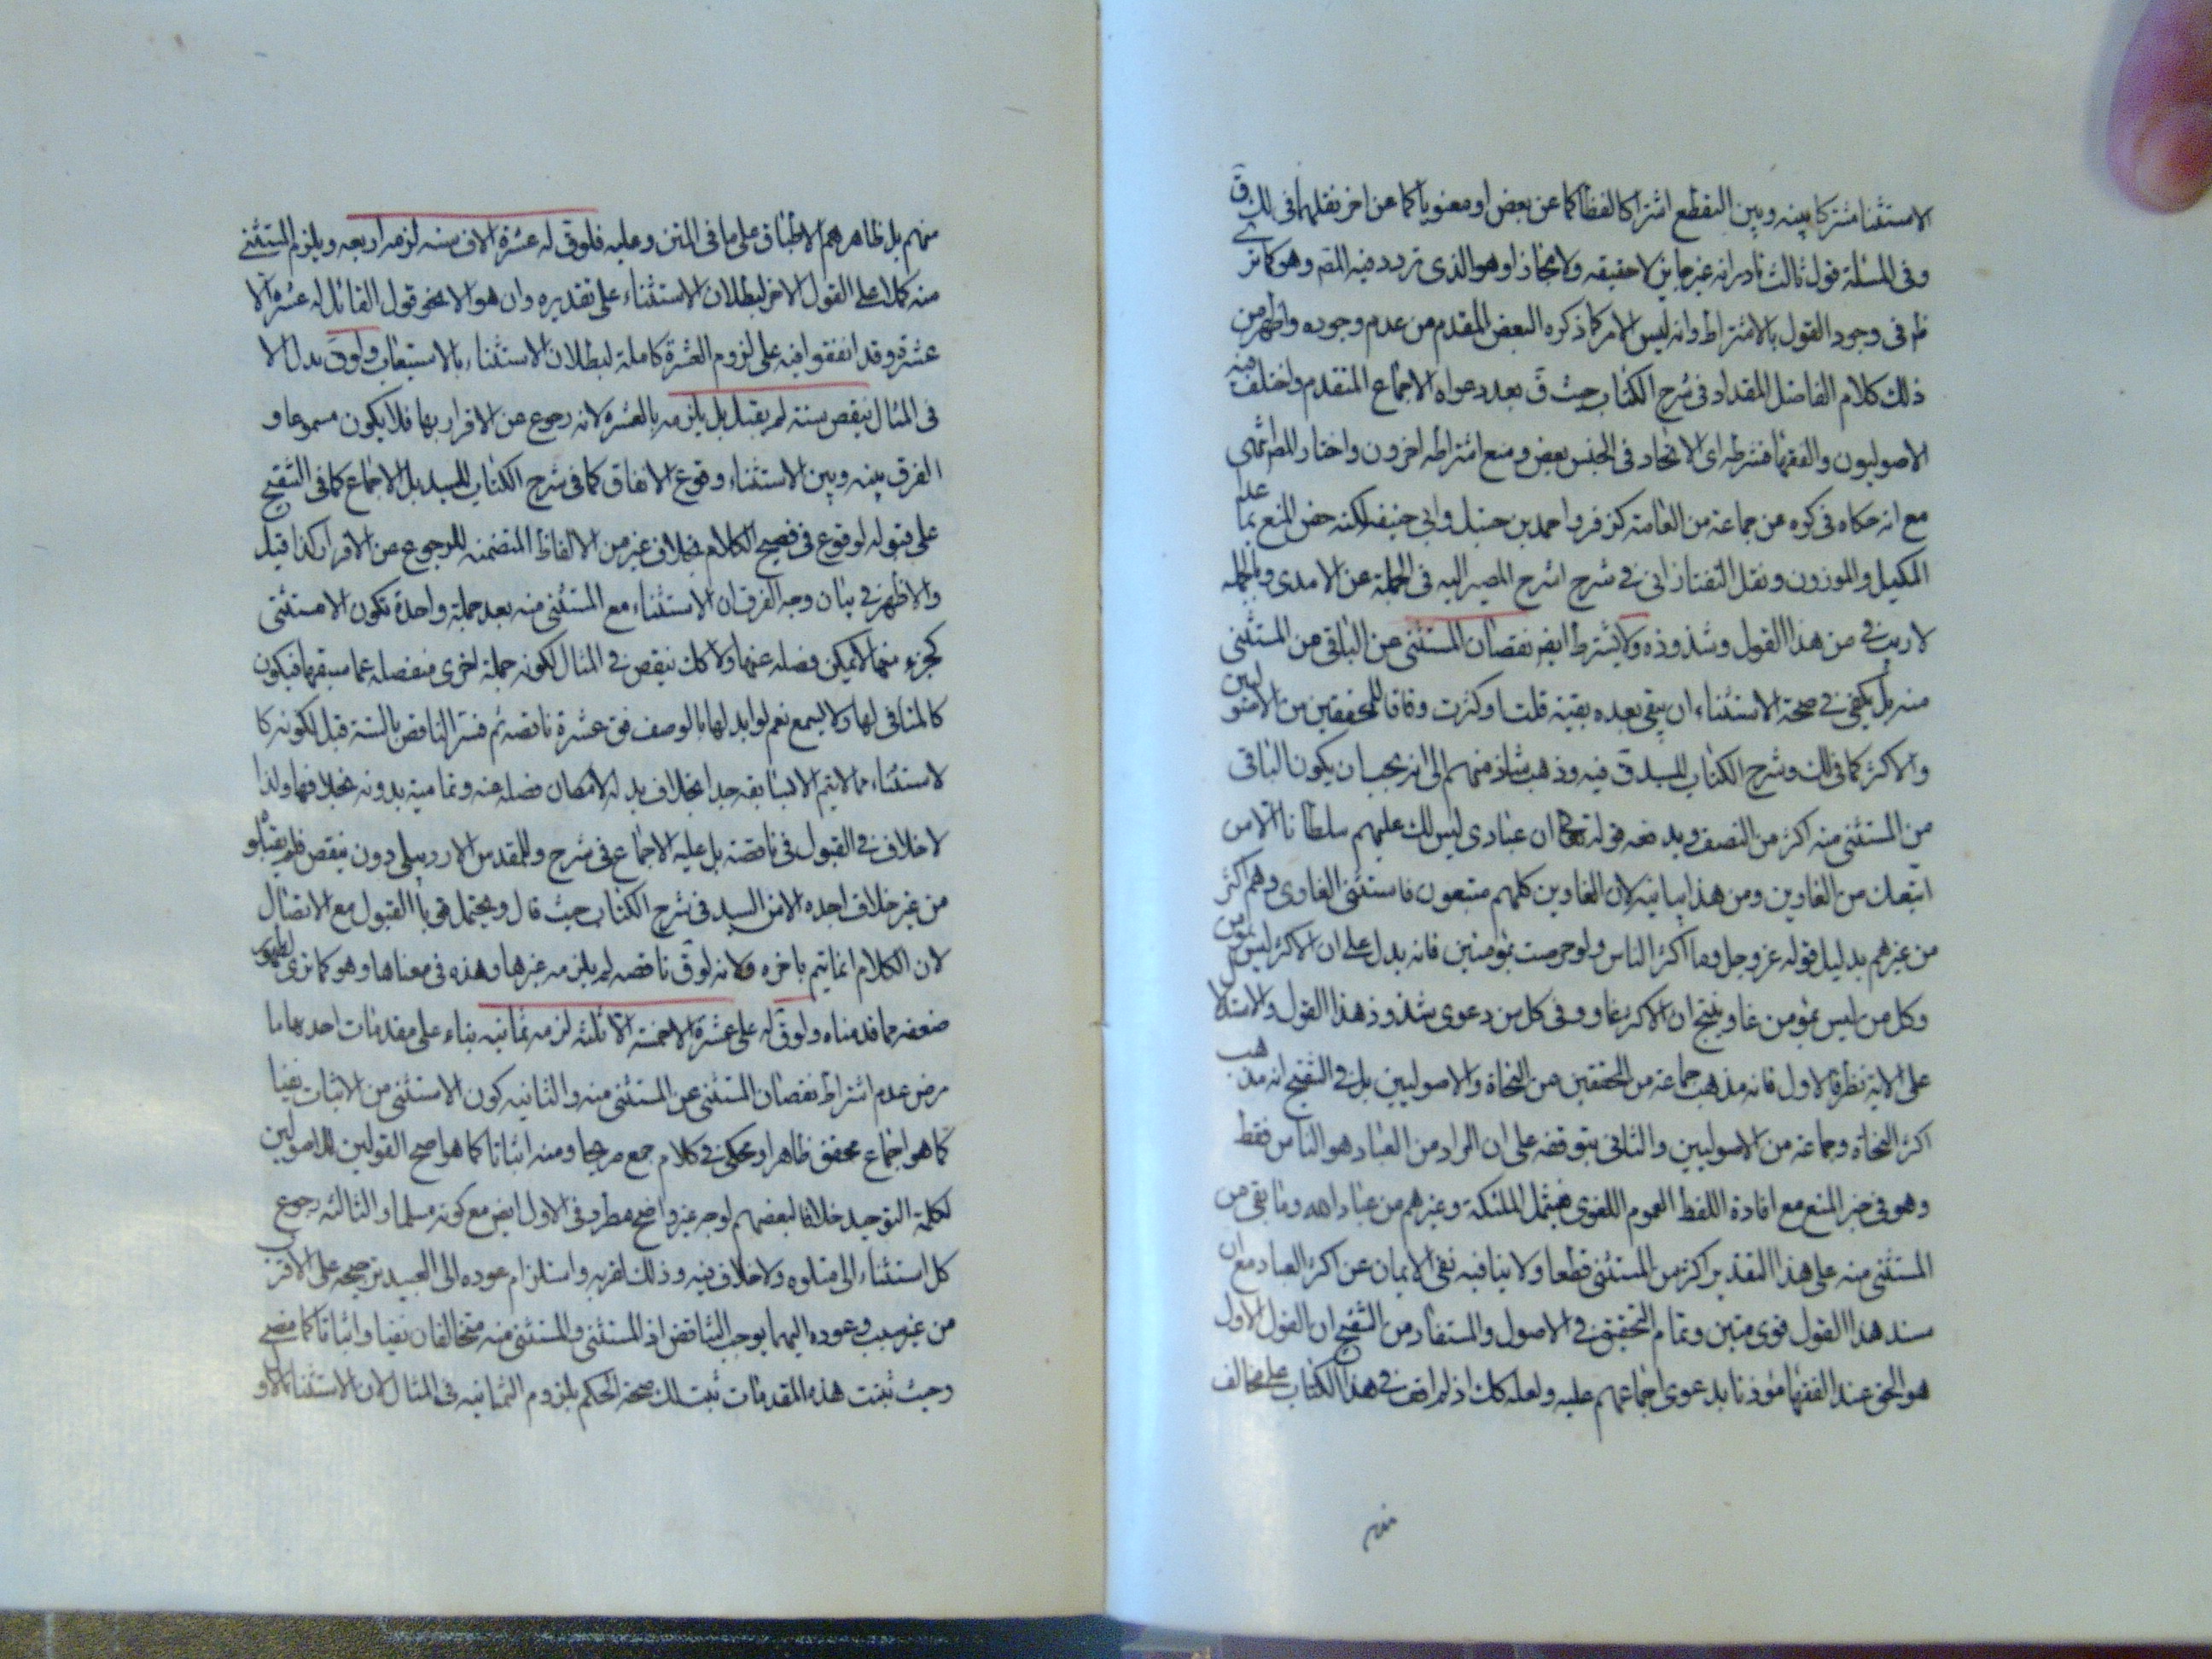 الاستثنا مشتركا بينه وبين المنقطع اشتراكا لفظا كما عن بعض او معنويا كما عن اخر نقلهما في لك ق
وفى المسئلة قول ثالث نادر انه غير جايز لا حقيقه ولا مجازا وهو الذى تردد فيه المصَ وهو كما ترى
ظَ فى وجود القول بالاشتراط وانه ليس الامر كما ذكره البعض المقدم من عدم وجوده واظهر من
ذلك كلام الفاضل المقداد فى شرح الكتاب حيث قَ بعد دعواه الاجماع المتقدم واختلف فيه
الاصوليون والفقها فشرطه اى الاتحاد فى الجنس بعض ومنع اشتراطه اخرون واختار المصَ انتهى
مع انه حكاه فى كره عن جماعة من العامة كزفر واحمد بن حنبل وابى حنيفه لكنه خص المنع بما عدا
المكيل والموزون ونقل التفتازانى فى شرح الشرح المصير اليه فى الجملة عن الامدى وبالجمله
لا ريب فى هذا القول وشذوذه ولا يشترط ايضَ نقصان المستثنى عن الباقى من المستثنى
منه بل يكفى فى صحة الاستثناء ان يبقى بعده بقية قلت او كثرت وفاقا للمحققين من الاصوليين
والاكثر كما فى لك وشرح الكتاب للسيد قَ فيه وذهب شاذ منهم الى انه يجب ان يكون الباقى
من المستثنى منه اكثر من النصف ويدفعه قوله تع ان عبادى ليس لك عليهم سلطانا الا من
اتبعك من الغاوين ومن هذا بيانية لان الغاوين كلهم متبعون فاستثنى الغاوى وهم اكثر
من غيرهم بدليل قوله عز وجل وما اكثر الناس ولو حرصت بمؤمنين فانه يدل على ان الاكثر ليس بمؤمن
وكل من ليس بمؤمن غاو ينتج ان الاكثر غاو وفى كل من دعوى شذوذ هذا القول والاستدلال
على الاية نظر فالاول فانه مذهب جماعة من المحققين من النحاة والاصوليين بل فى التنقيح انه مذهب
اكثر النحاة وجماعة من الاصوليين والثانى بتوقفه على ان المراد من العباد هو الناس فقط
وهو فى حيز المنع مع افادة اللفظ العموم اللغوى فيشمل الملئكة وغيرهم من عباد الله وما بقى من
المستثنى منه على هذا التقدير اكثر من المستثنى قطعا ولا ينافيه نفى الايمان عن اكثر العباد مع ان
سند هذا القول قوى متين وتمام التحقيق فى الاصول والمستفاد من التنقيح ان القول الاول
هو الحق عند الفقها مؤذنا بدعوى اجماعهم عليه ولعله كك اذ لم اقف فى هذا الكتاب على مخالف
منهم
منهم بل ظاهرهم الاطباق على ما فى المتن وعليه فلو قَ له عشرة الا ستة لزمه اربعه ويلزم المستثنى
منه كملا على القول الاخر لبطلان الاستثناء على تقديره وان هو الا نحو قول القائل له عشرة الا
عشرة وقد اتفقوا فيه على لزوم العشرة كاملة لبطلان الاستثناء بالاستيعاب ولو قَ بدل الا
فى المثال ينقص ستة لم يقبل بل يلزمه بالعشره لانه رجوع عن الاقرار بها فلا يكون مسموعا و
الفرق بينه وبين الاستثناء وقوع الاتفاق كما فى شرح الكتاب للسيد بل الاجماع كما فى التنقيح
على قبوله لوقوع فى فصيح الكلام بخلاف غيره من الالفاظ المتضمنه للرجوع عن الاقرار كذا قيل
والاظهر فى بيان وجه الفرق ان الاستثناء مع المستثنى منه بعد جملة واحدة تكون الاستثنى
كجزء منها لا يمكن فصله عنها ولا كك ينقص فى المثال لكونه جملة اخرى منفصله عما سبقها فيكون
كالمنافى لها ولا يسمع نعم لو ابدلها بالوصف فق عشرة ناقصه ثم فسر الناقص بالستة قبل لكونه كا
لاستثناء مما لا يتم الا بسابقه جدا بخلاف بدله لامكان فصله عنه وتمامية بدونه بخلافها ولذا
لا خلاف فى القبول فى ناقصة بل عليه الاجماع فى شرح المقدس الاردبيلى دون ينقص فلم يقبلوه
من غير خلاف اجده الا من السيد فى شرح الكتاب حيث قال ويحتمل قويا القبول مع الاتصال
لان الكلام انما يتم باخره ولانه لو قَ ناقصه لم يلزمه غيرها وهذه فى معناها وهو كما ترى لظهور
ضعفه مما قدمناه ولو قَ له على عشرة الا خمسة الا ثلثه لزمه ثمانيه بناء على مقدمات احدها ما
مرض عدم اشتراط نقصان المستثنى عن المستثنى منه والثانيه كون الاستثنى من الاثبات نفيا
كما هو اجماع محقق ظاهرا ومحكى فى كلام جمع صريحا ومنه اثباتا كما هو اصح القولين للاصوليين
لكلمة التوحيد خلافا لبعضهم لوجه غير واضح مطرد فى الاول ايض مع كونه مسلما والثالثه رجوع
كل استثناء الى متلوه ولا خلاف فيه وذلك لقربه واستلزام عوده الى البعيد ترجيحه على الاقرب
من غير سبب وعوده اليهما يوجب التناقض اذ المستثنى والمستثنى منه متخالفان نفيا واثباتا كما مضى
وحيث ثبتت هذه المقدمات ثبت لك صحة الحكم بلزوم الثمانيه فى المثال لان الاستثنا الاو